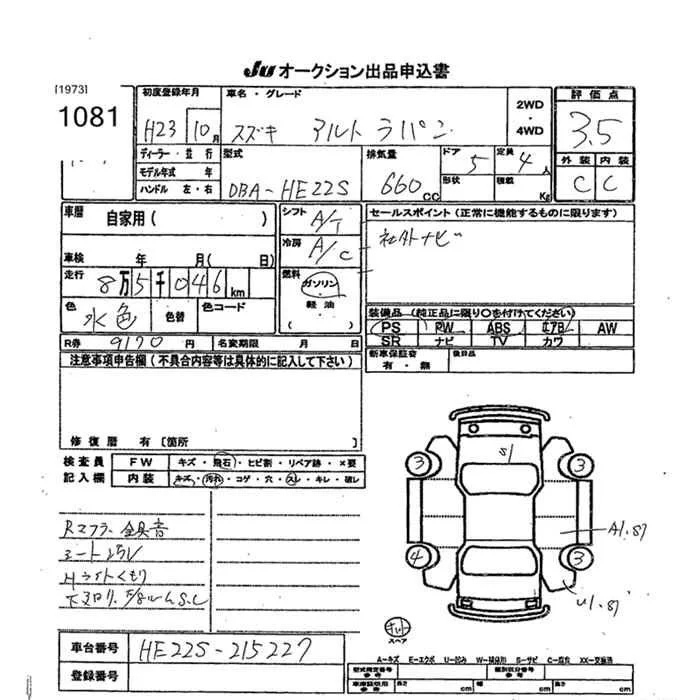 JU オークション出品申込書
[1973]
1081
初度登録年月
H23 10月
車名・グレード
スズキ アルト ラパン
2WD
・
4WD
評価点
3.5
外装 内装
C C
ディーラー・並行
モデル年式 年
ハンドル 左・右
型式
DBA-HE22S
排気量
660cc
ドア 5
形状
定員 4人
積載 Kg
車歴 自家用( )
車検 年 月( 日)
走行 8万5千046km
色 水色
色替
色コード
シフト A/T
冷房 A/C
燃料 ガソリン
・
軽油
( )
セールスポイント(正常に機能するものに限ります)
社外ナビ
装備品(純正品に限り○を付けてください)
PS PW ABS エアB AW
SR ナビ TV カワ
新車保証書 有・無
後日品
R券 9170円
名変期限 月 日
注意事項申告欄(不具合内容等は具体的に記入して下さい)
修復歴 有[箇所 ]
検査員 FW キズ・飛石・ヒビ割・リペア跡・×要
記入欄 内装 キズ・汚れ・コゲ・穴・スレ・キレ・破レ
Rマフラー金具音
シート
Hライトくもり
S.C
S1
3 3
4 3
A1.87
U1.87
スペア
車台番号 HE22S-215227
登録番号
A=キズ E=エクボ U=凹み W=補修跡 S=サビ C=腐食 XX=交換済
型式指定番号
参考
類別区分番号
参考
車庫証明用
参考
長さ cm
幅 cm
高さ cm